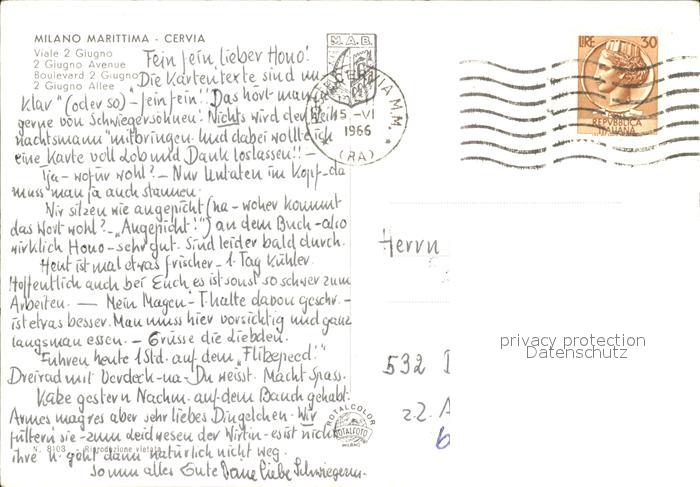 MILANO MARITTIMA - CERVIA
Viale 2 Giugno
2 Giugno Avenue
Boulevard 2 Giugno
2 Giugno Allee
Fein fein, lieber Hono!
Die Kartentexte sind un-
klar" (oder so) - fein fein!! Das hört man
gerne von Schwiegersöhnen. Nichts wird der Weih
nachtsmann mitbringen. Und dabei wollt ich
eine Karte voll Lob und Dank loslassen!! -
Tja - wofür wohl? - Nur Untaten im Kopf - da
muss man ja auch staunen.
Wir sitzen wie angepicht (na - woher kommt
das Wort wohl? - "Angepicht!") an dem Buch - also
wirklich Hono - sehr gut. Sind leider bald durch.
Heut ist mal etwas frischer - 1. Tag kühler.
Hoffentlich auch bei Euch, es ist sonst so schwer zum
Arbeiten. - Mein Magen - T. halte davon geschr. -
ist etwas besser. Man muss hier vorsichtig und ganz
langsam essen. - Grüsse die Liebden.
Fuhren heute 1 Std. auf dem "Flibepeed!"
Dreirad mit Verdeck - na - Du weisst. Macht Spass.
Käbe gestern Nachm. auf dem Bauch gehabt.
Armes magres aber sehr liebes Dingelchen. Wir
füttern sie - zum Leidwesen der Wirtin - es ist nicht
ihre u. geht dann natürlich nicht weg.
So nun alles Gute Deine liebe Schwiegerm.
N. 8108 - Riproduzione vietata
M.A.B.
CERVIA M.M.
15 -VI
1966
(RA)
LIRE 30
REPVBBLICA
ITALIANA
Herrn
532
22.
ROTALCOLOR
ROTALFOTO
MILANO
privacy protection
Datenschutz